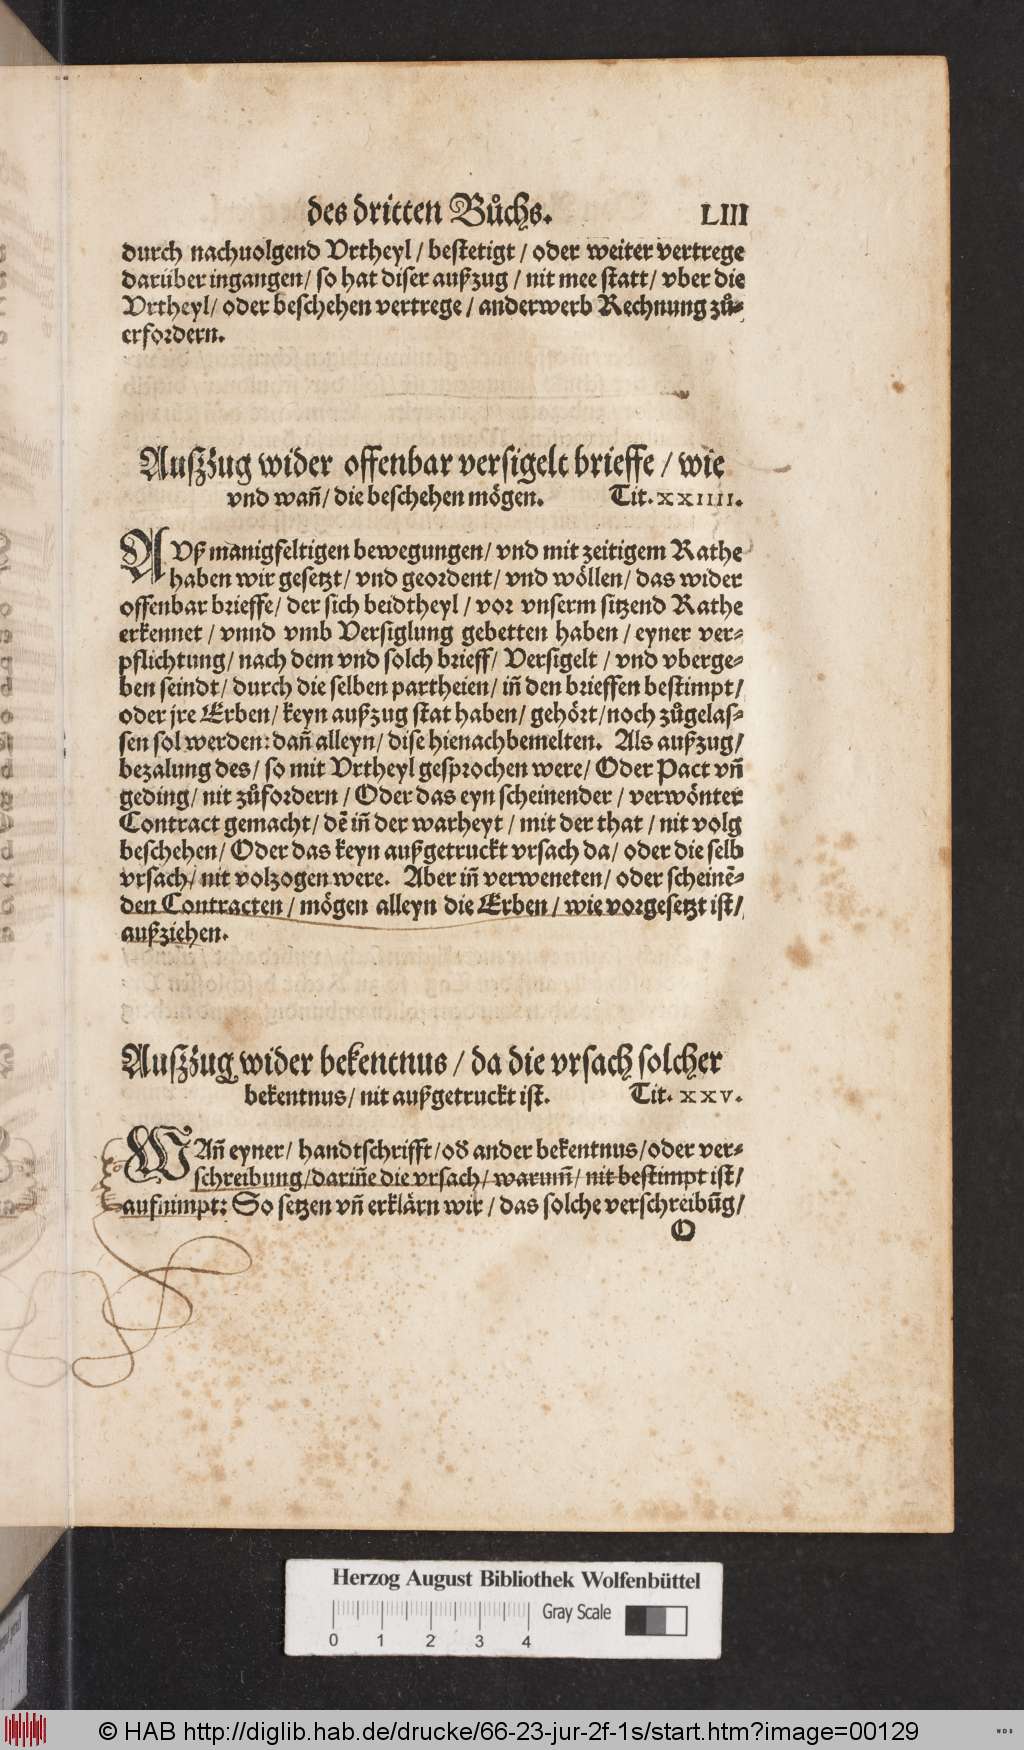 des dritten Bůchs. LIII
durch nachuolgend Vrtheyl / bestetigt / oder weiter vertrege
darüber ingangen / so hat diser außzug / nit mee statt / vber die
Vrtheyl / oder beschehen vertrege / anderwerb Rechnung zů-
erfordern.
Außzug wider offenbar versigelt brieffe / wie
vnd wañ / die beschehen mögen. Tit. XXIIII.
AVß manigfeltigen bewegungen / vnd mit zeitigem Rathe
haben wir gesetzt / vnd geordent / vnd wöllen / das wider
offenbar brieffe / der sich beidtheyl / vor vnserm sitzend Rathe
erkennet / vnnd vmb Versiglung gebetten haben / eyner ver-
pflichtung / nach dem vnd solch brieff / Versigelt / vnd vberge-
ben seindt / durch die selben partheien / iñ den brieffen bestimpt /
oder jre Erben / keyn außzug stat haben / gehört / noch zůgelas-
sen sol werden: dañ alleyn / dise hienachbemelten. Als außzug /
bezalung des / so mit Vrtheyl gesprochen were / Oder Pact vñ
geding / nit zůfordern / Oder das eyn scheinender / verwönter
Contract gemacht / dẽ iñ der warheyt / mit der that / nit volg
beschehen / Oder das keyn außgetruckt vrsach da / oder die selb
vrsach / nit volzogen were. Aber iñ verweneten / oder scheinẽ-
den Contracten / mögen alleyn die Erben / wie vorgesetzt ist /
außziehen.
Außzug wider bekentnus / da die vrsach solcher
bekentnus / nit außgetruckt ist. Tit. XXV.
WAñ eyner / handtschrifft / oď ander bekentnus / oder ver-
schreibung / dariñe die vrsach / warum̃ / nit bestimpt ist /
aufnimpt: So setzen vñ erklärn wir / das solche verschreibũg /
O
Herzog August Bibliothek Wolfenbüttel
0 1 2 3 4 Gray Scale
© HAB http://diglib.hab.de/drucke/66-23-jur-2f-1s/start.htm?image=00129